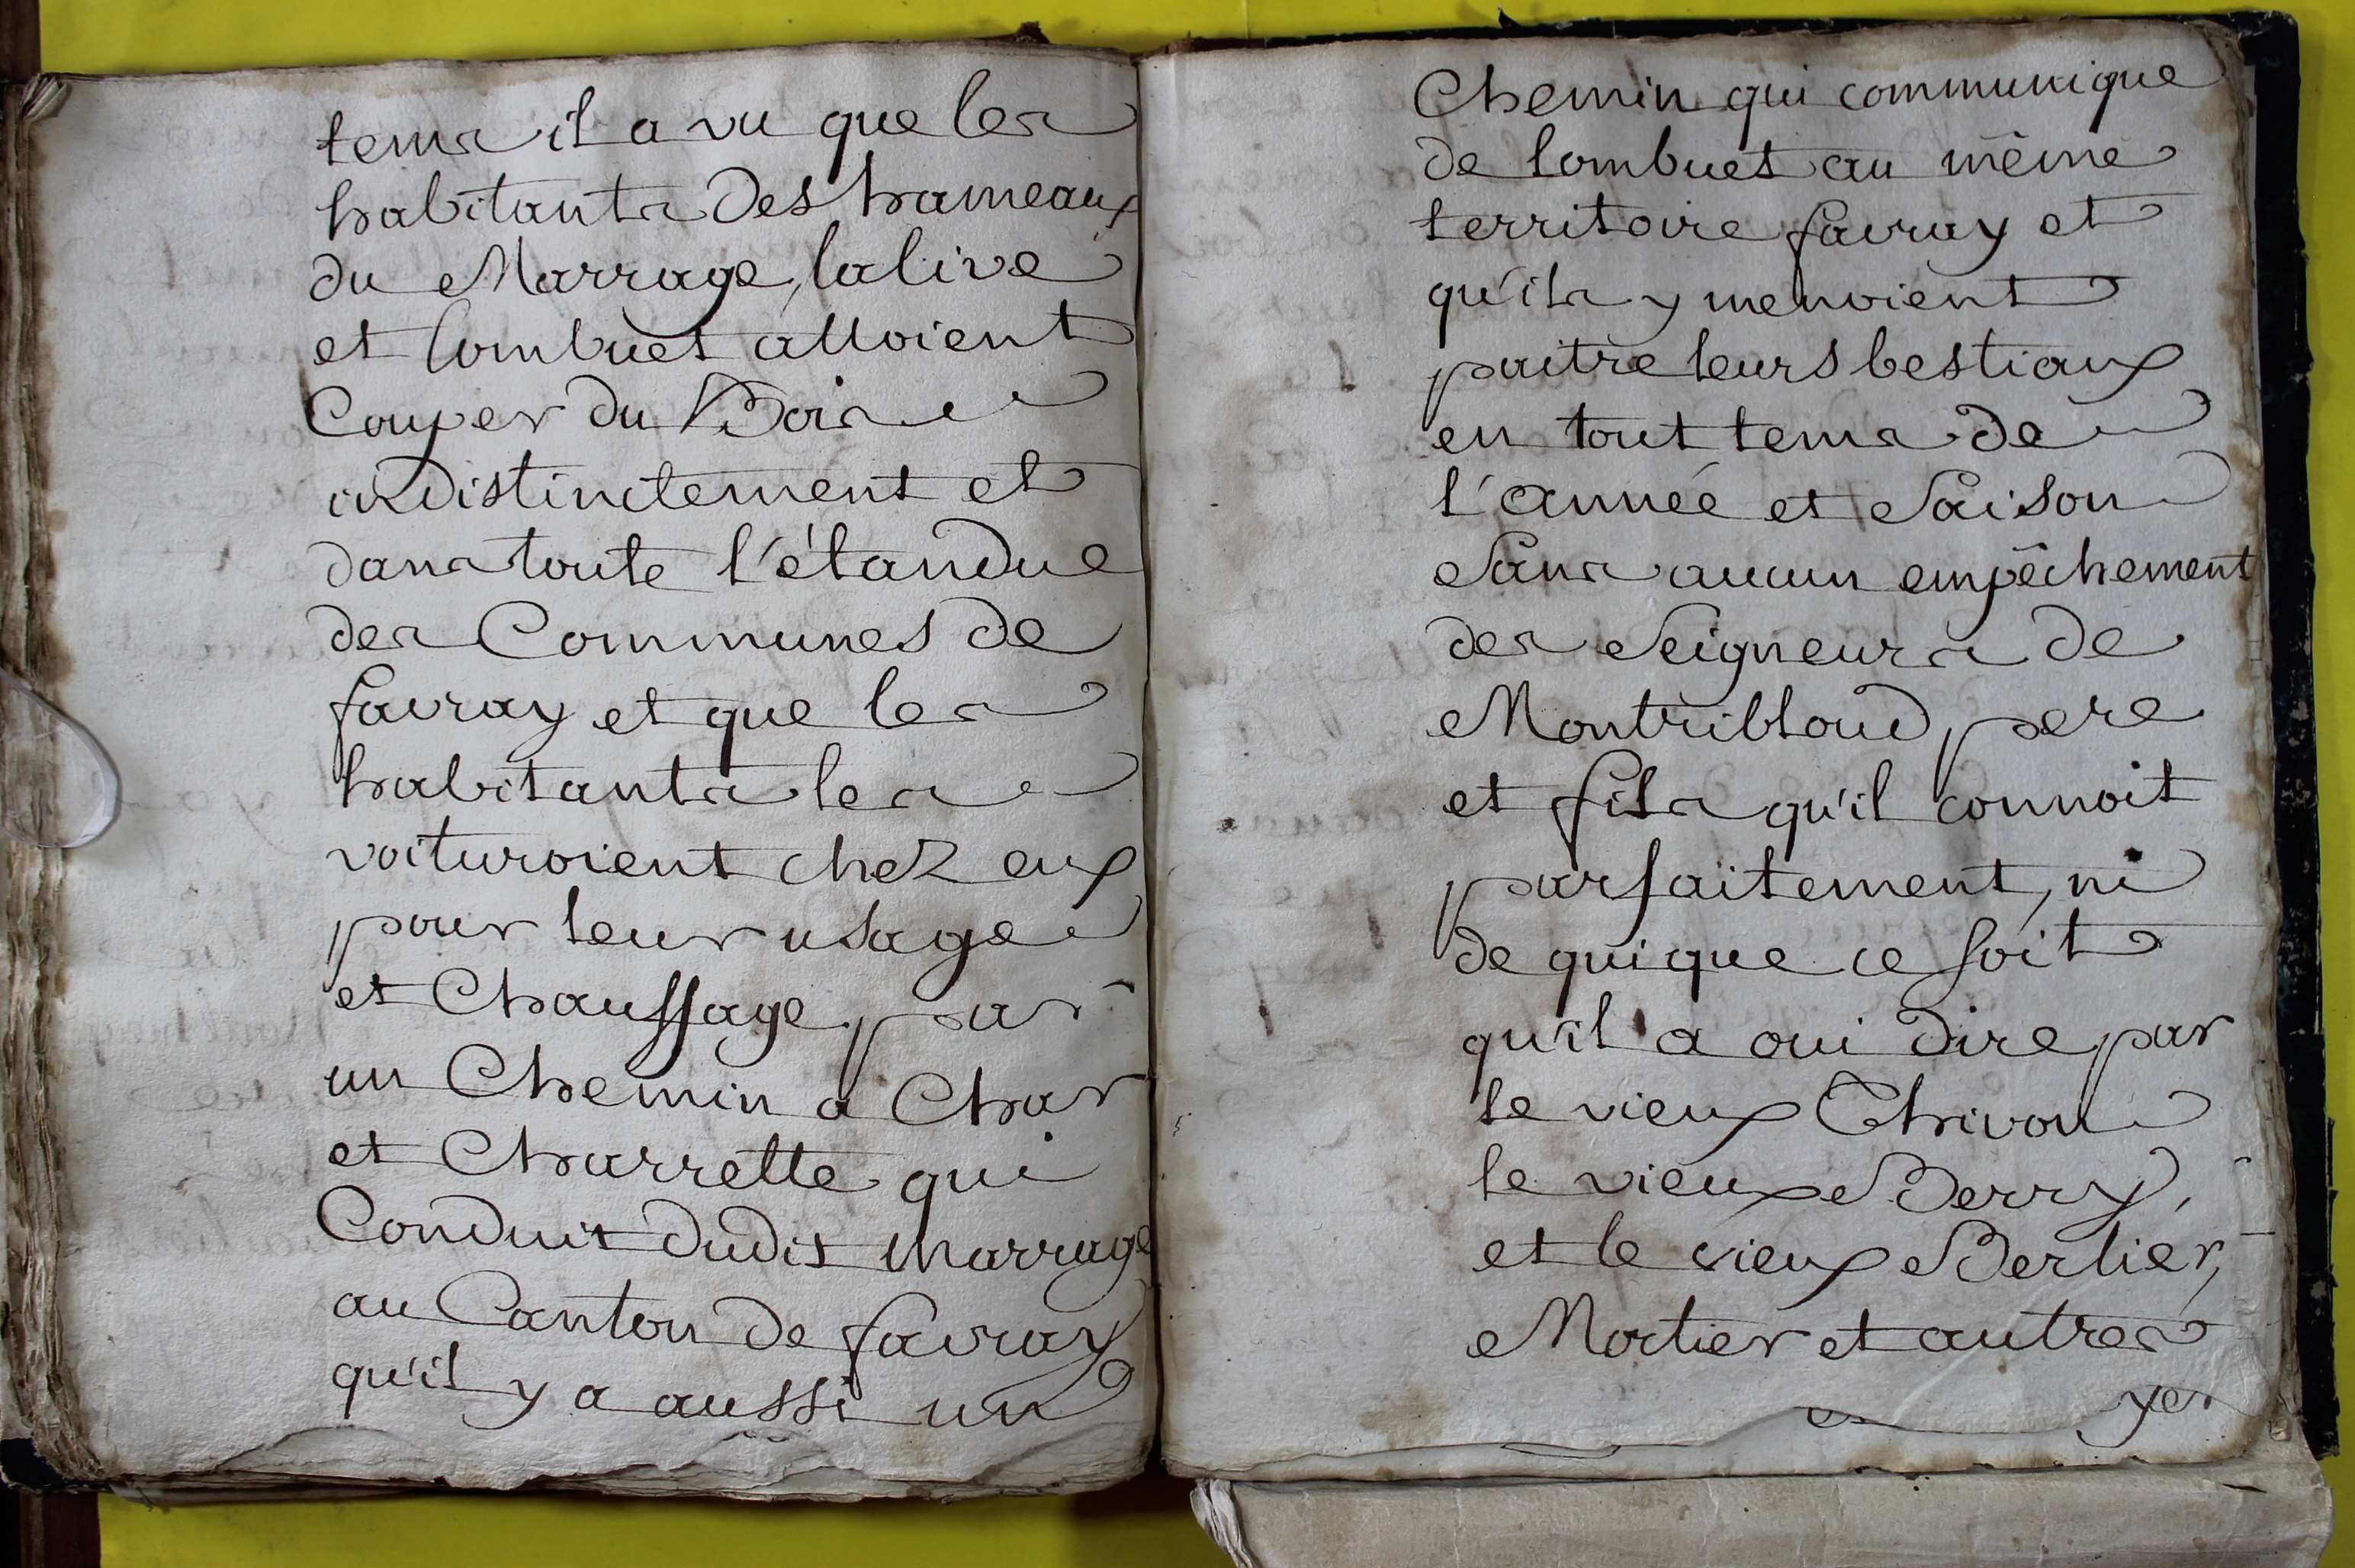 tems il a vu que les
habitants des hameaux
du Marrage, lalive
et Combuet alloient
Couper du Bois
indistinctement et
dans toute l'étandue
des Communes de
favray et que les
habitants les
voituroient chez eux
pour leur usage
et Chauffage, par
un Chemin a Char
et Charrette qui
Conduit dudit Marrage
au Canton de favray
qu'il y a aussi un
Chemin qui communique
de Combuet au même
territoire favray et
qu'ils y menoient
paitre leurs bestiaux
en tout tems de
l'année et Saison
Sans aucun empêchement
des Seigneurs de
Montribloud, pere
et fils qu'il connoit
parfaitement, ni
de qui que ce soit
qu'il a oui dire par
le vieux Thivon
le vieux Berry,
et le vieux Berlier,
Mortier et autres